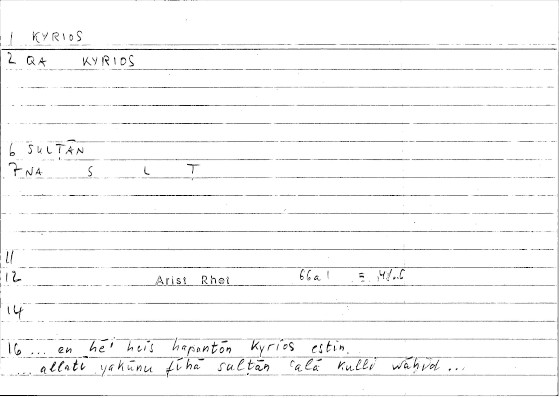 1 KYRIOS
2 QA KYRIOS
6 SULṬĀN
7 NA S L Ṭ
11
12 Arist Rhet 66a1
14
16 ... en hēi heis hapantōn Kyrios estin.
... allatī yakūnu fīhā sulṭān ʿalā kulli wāḥid ...